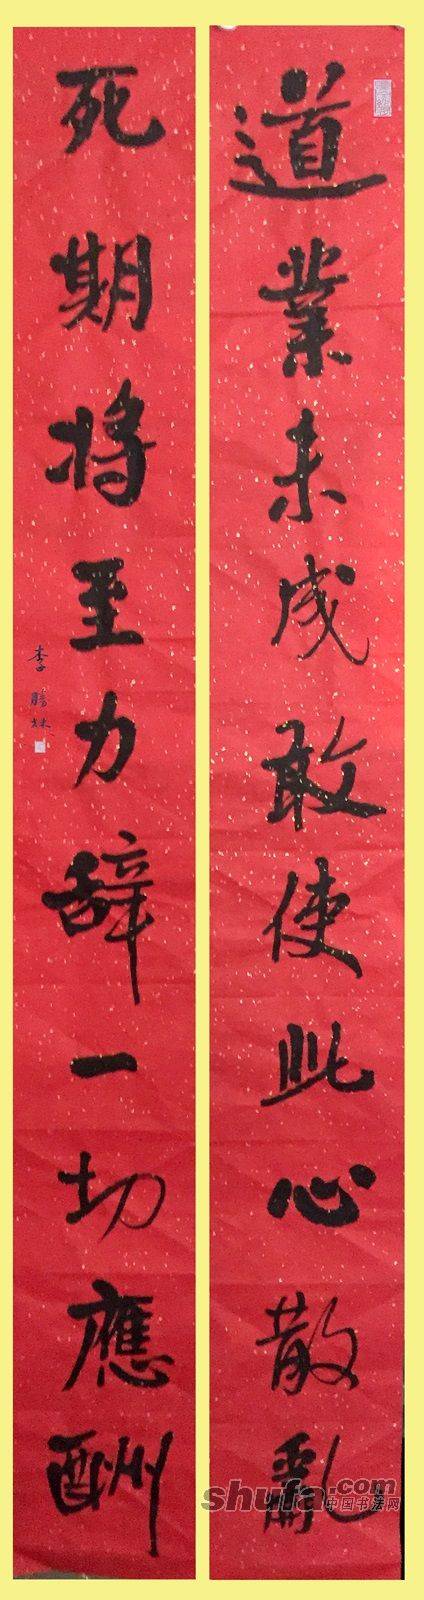 道業未成敢使此心散亂
死期将至力辞一切應酬
李勝林
shufa.com
中国书法网